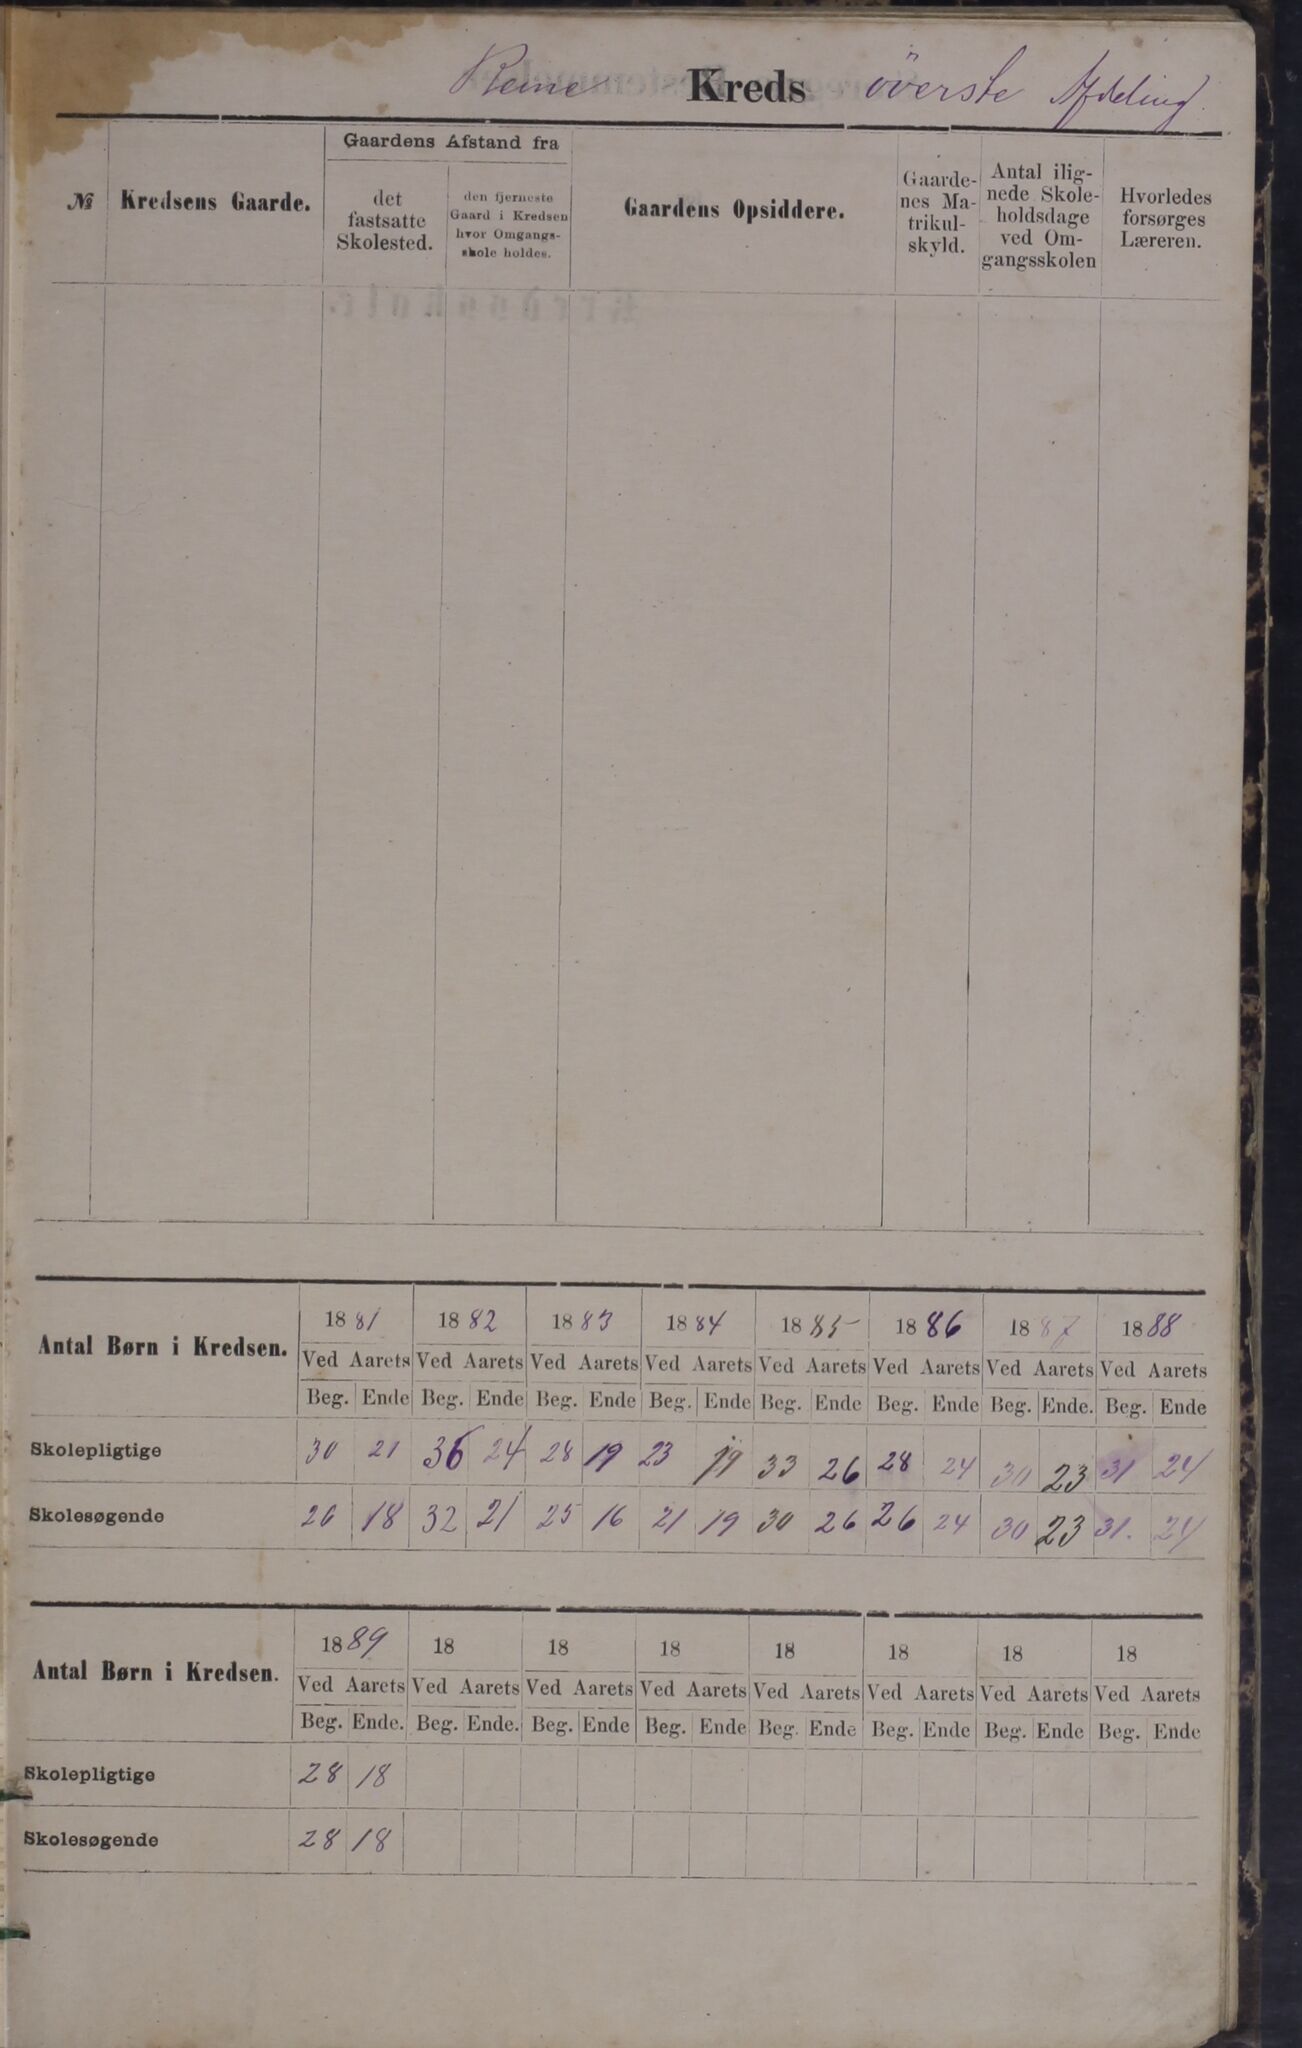 Reine Kreds överste Afdeling
№ Kredsens Gaarde.
Gaardens Afstand fra
det fastsatte Skolested.
den fjerneste Gaard i Kredsen hvor Omgangsskole holdes.
Gaardens Opsiddere.
Gaarde-
nes Ma-
trikul-
skyld.
Antal ilig-
nede Skole-
holdsdage
ved Om-
gangsskolen
Hvorledes
forsørges
Læreren.
Antal Børn i Kredsen. 1881 1882 1883 1884 1885 1886 1887 1888
Ved Aarets Ved Aarets Ved Aarets Ved Aarets Ved Aarets Ved Aarets Ved Aarets Ved Aarets
Beg. Ende Beg. Ende Beg. Ende Beg. Ende Beg. Ende Beg. Ende Beg. Ende. Beg. Ende
Skolepligtige 30 21 36 24 28 19 23 19 33 26 28 24 30 23 31 24
Skolesøgende 26 18 32 21 25 16 21 19 30 26 26 24 30 23 31. 24
Antal Børn i Kredsen. 1889 18 18 18 18 18 18 18
Ved Aarets Ved Aarets Ved Aarets Ved Aarets Ved Aarets Ved Aarets Ved Aarets Ved Aarets
Beg. Ende. Beg. Ende. Beg. Ende Beg. Ende Beg. Ende Beg. Ende Beg. Ende Beg. Ende
Skolepligtige 28 18
Skolesøgende 28 18